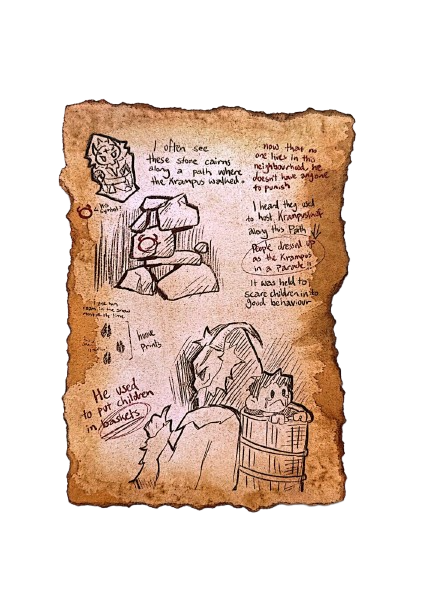 I often see
these stone cairns
along a path where
the Krampus walked.
now that no
one lives in this
neighbourhood, he
doesn't have anyone
to punish
I heard they used
to host Krampuslauf
along this Path
People dressed up
as the Krampus
in a Parade!!
It was held to
scare children into
good behaviour
in the snow
Hoove
Prints
He used
to put children
in baskets